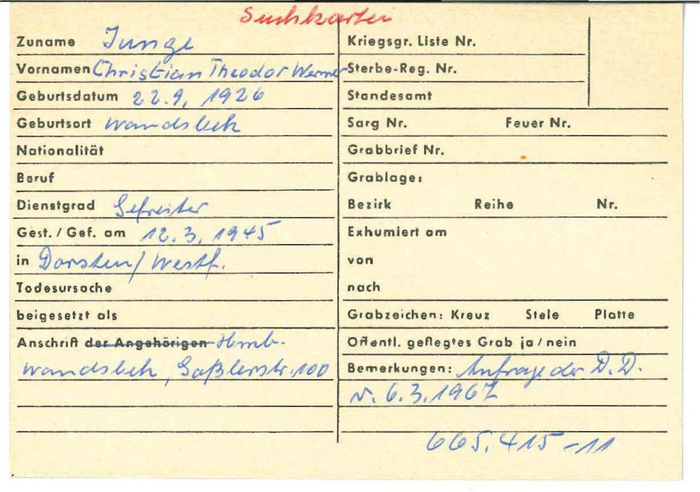 Suchkartei
Zuname Junge
Vornamen Christian Theodor Werner
Geburtsdatum 22.9.1926
Geburtsort Wandsbek
Nationalität
Beruf
Dienstgrad Gefreiter
Gest./Gef. am 12.3.1945
in Dorsten/Westf.
Todesursache
beigesetzt als
Anschrift der Angehörigen Hmb.-
Wandsbek, Gaßlerstr. 100
Kriegsgr. Liste Nr.
Sterbe-Reg. Nr.
Standesamt
Sarg Nr. Feuer Nr.
Grabbrief Nr.
Grablage:
Bezirk Reihe Nr.
Exhumiert am
von
nach
Grabzeichen: Kreuz Stele Platte
Öffentl. geflegtes Grab ja/nein
Bemerkungen: Anfrage der D.D.
v. 6.3.1967
665.415-11